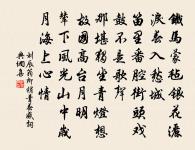 鐵馬蒙氈銀花灑
淚春入愁城
笛里番腔街頭戲
鼓不是歌聲
那堪獨坐青燈想
故國高台月明
輦下風光山中歲
月海上心情
劉辰翁柳梢青春感詞